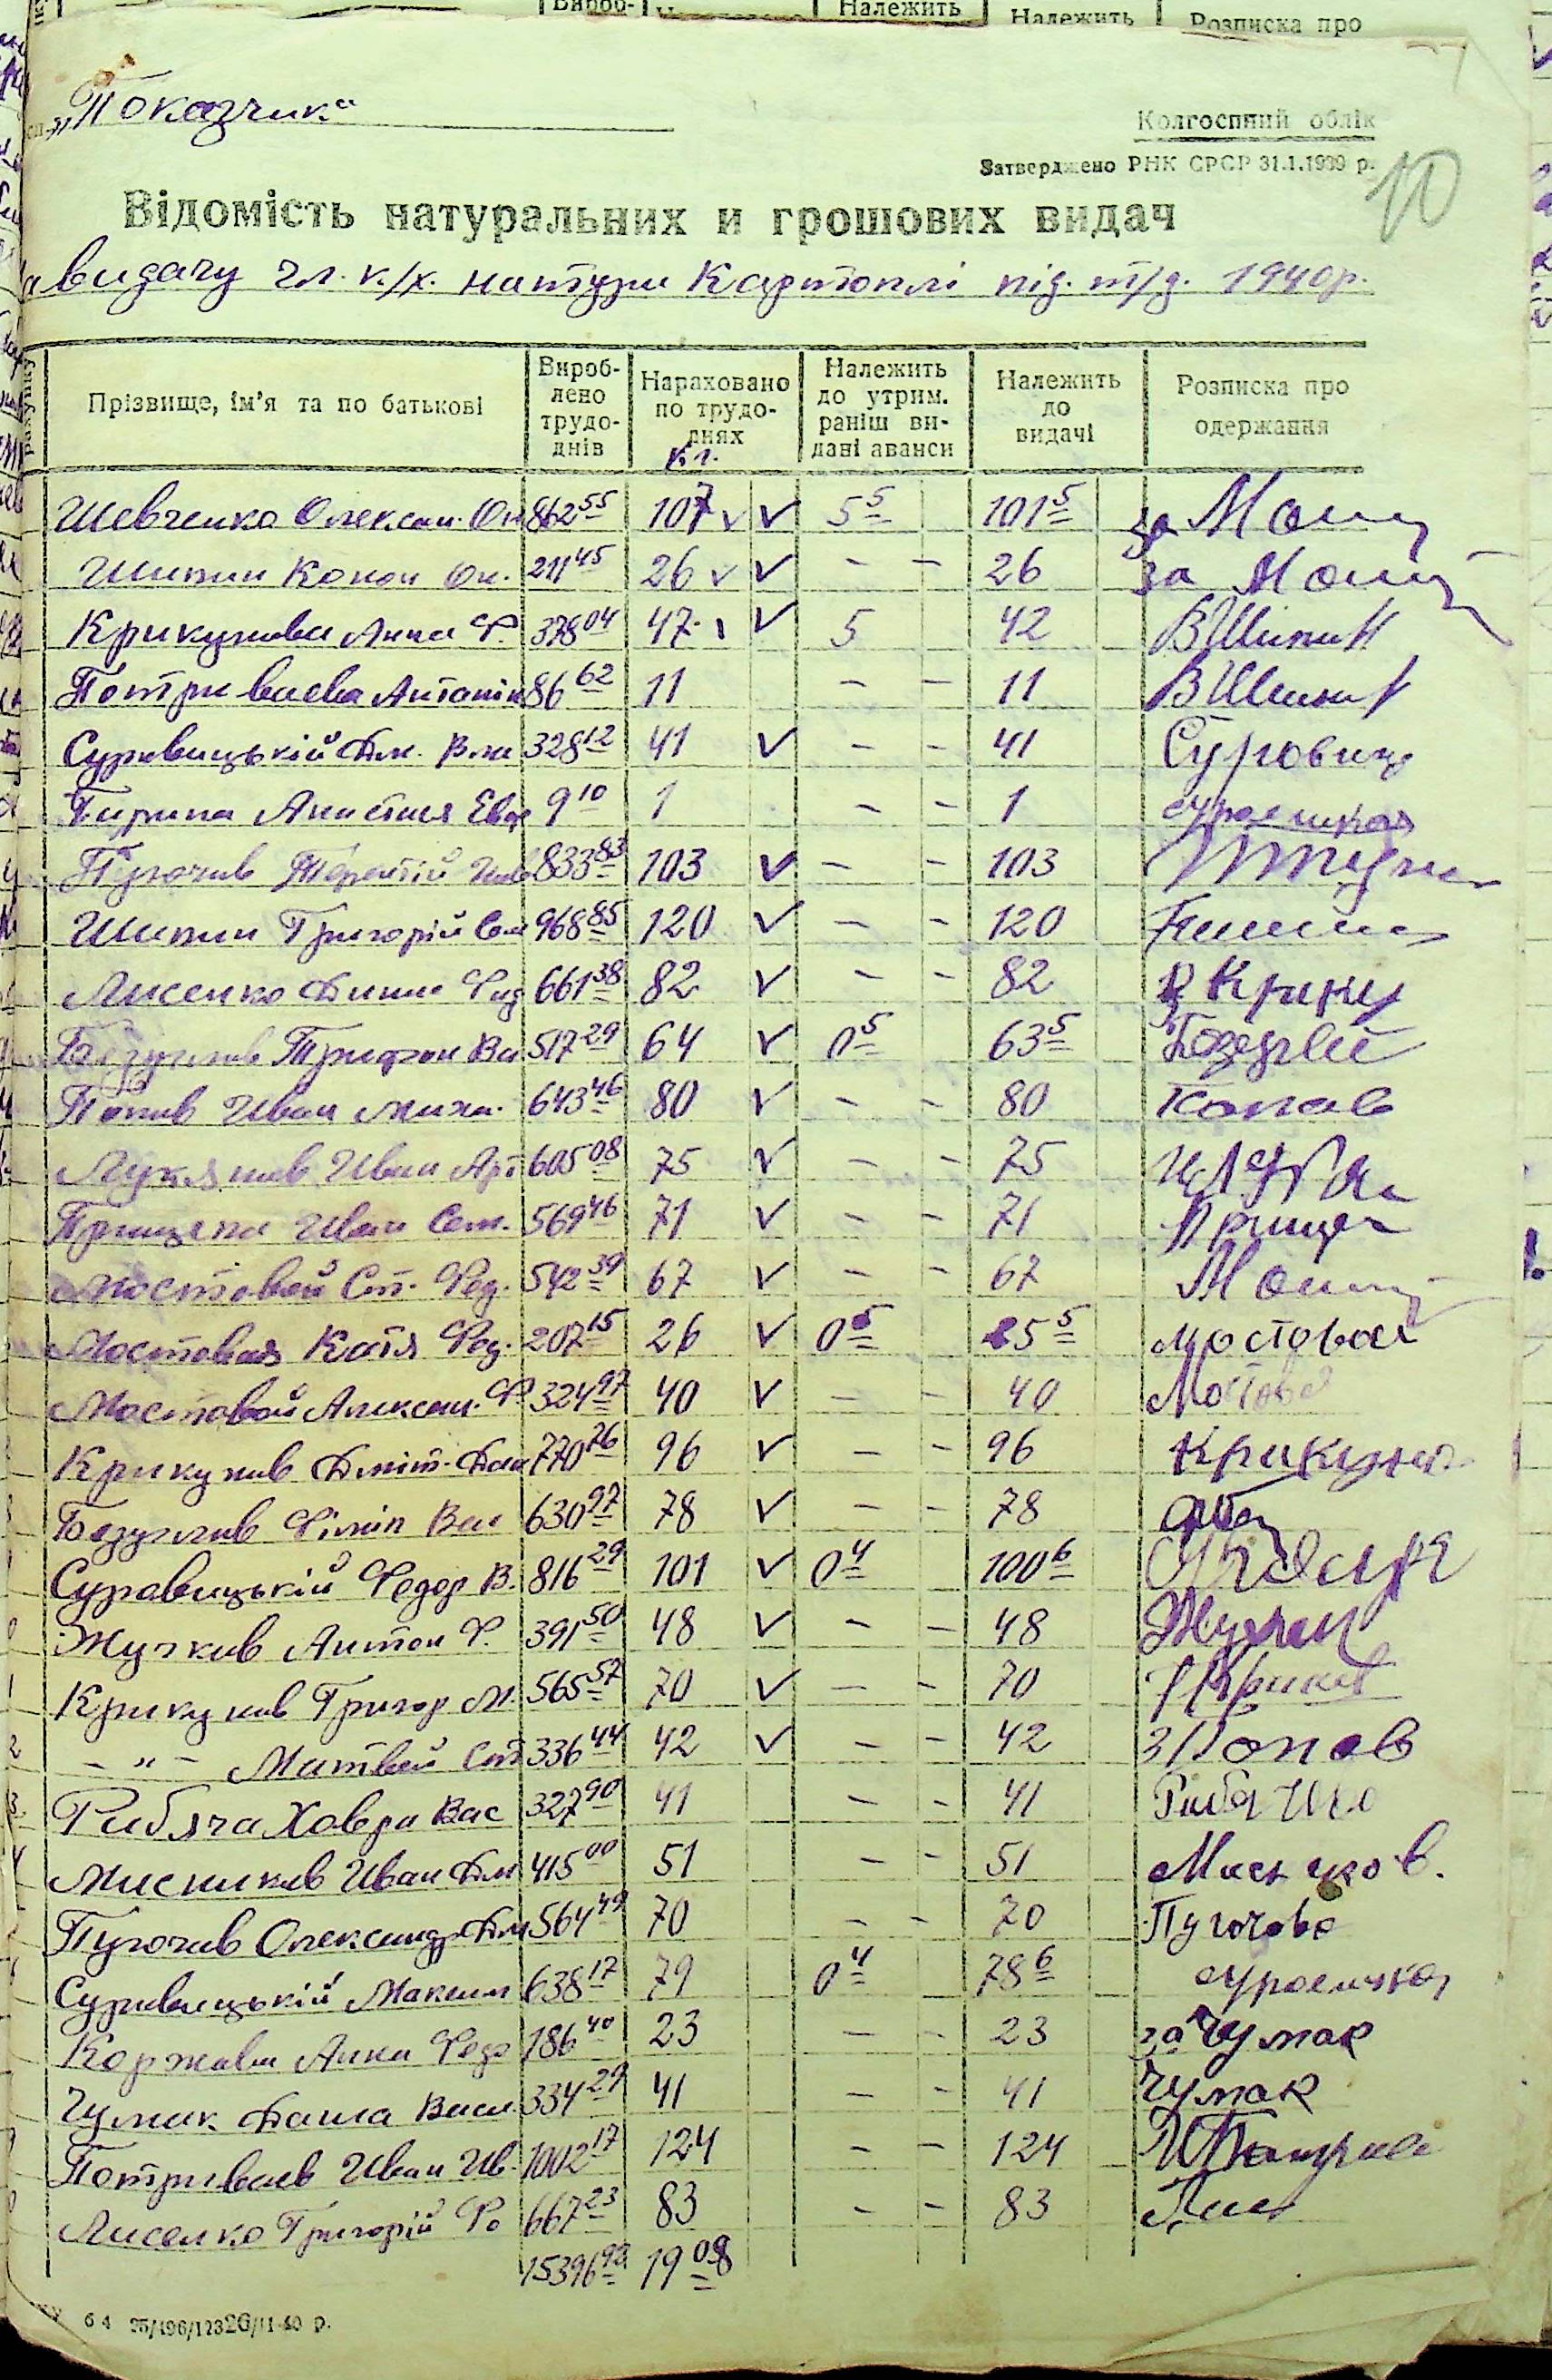 Належить Належить Розписка про
„Показчик“
Колгоспний облік
Затверджено РНК СРСР 31.1.1939 р.
10
Відомість натуральних и грошових видач
видачу чл. к./х. натури Картоплі під. т/д. 1940р.
Прізвище, ім’я та по батькові
Вироб-
лено
трудо-
днів
Нараховано
по трудо-
днях
кг.
Належить
до утрим.
раніш ви-
дані аванси
Належить
до
видачі
Розписка про
одержання
Шевченко Олексан. Он 862 55 107 v v 5 5 101 5 за Мо
Шипил Конон Он. 211 45 26 v v - - 26 за Мо
Крикунова Анна Ф. 378 04 47 v 5 42 ВШипил
Потриваева Антоніна 86 62 11 - - 11 ВШипил
Суровицькій Дм. 328 12 41 v - - 41 Суровиц
Анастася 9 10 1 - - 1
Пугочив Терентій 833 83 103 v - - 103
Шипил Григорій Сем 968 85 120 v - - 120
Лисенко Фед 661 38 82 v - - 82 Крику
Безуглив Трифон Ва 517 29 64 v 0 5 63 5
Попив Иван Миха. 643 46 80 v - - 80 Попов
Лукянив Иван Арт 605 08 75 v - - 75
Прищепа Иван Сем. 569 46 71 v - - 71 Прищеп
Мостовой Ст. Фед. 542 39 67 v - - 67
Мостовая Катя Фед. 207 15 26 v 0 5 25 5 мостовая
Мостовой Алексан. Ф 324 97 40 v - - 40 Мостово
Крикунив Дміт. Дан 770 76 96 v - - 96 Крикунов
Безуглив Філіп Вас 630 97 78 v - - 78
Суровицькій Федор В. 816 29 101 v 0 4 100 6
Жучков Антон Ф. 391 50 48 v - - 48
Крикунив Григор М. 565 57 70 v - - 70
- „ - Матвей Ст 336 44 42 v - - 42 Попов
Рибяча Ховра Вас 327 90 41 - - 41
Мисников Иван Дм 415 00 51 - - 51 Мисников.
Пугочив Олександр Дм 564 49 70 - - 70 Пугочова
Суровицькій Максим 638 17 79 0 4 78 6
Коржова Анна Федо 186 40 23 - - 23 за Чумак
Чумак Даша Васи. 334 29 41 - - 41 Чумак
Потриваев Иван Ив. 1002 17 124 - - 124
Лисенко Григорій Фо 667 23 83 - - 83 Лис
15396 92 1908
64 95/496/12326/11-40 р.